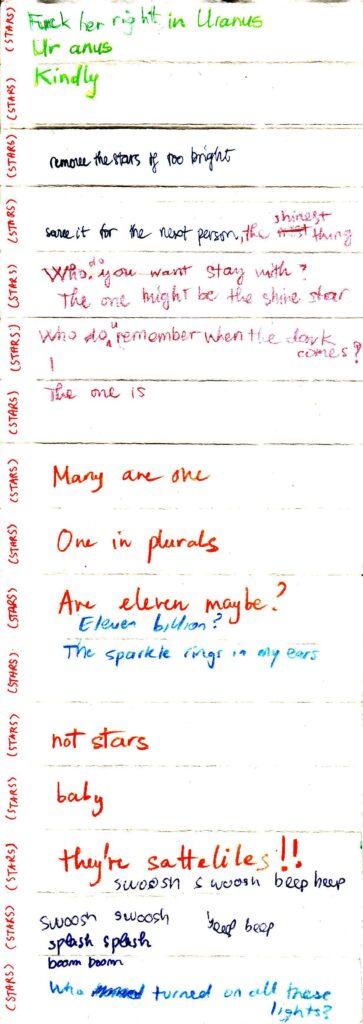 (STARS)
Fuck her right in Uranus
Ur anus
(STARS)
Kindly
(STARS)
remove the stars if too bright
(STARS)
save it for the next person, the shinest thing
(STARS)
Who do you want stay with?
The one might be the shine star
(STARS)
Who do u remember when the dark comes?
I
(STARS)
The one is
(STARS)
Many are one
(STARS)
One in plurals
(STARS)
Are eleven maybe?
Eleven billion?
(STARS)
The sparkle rings in my ears
(STARS)
not stars
(STARS)
baby
(STARS)
they're satteliles!!
swoosh swoosh beep beep
(STARS)
swoosh swoosh beep beep
splash splash
boom boom
(STARS)
Who turned on all these lights?